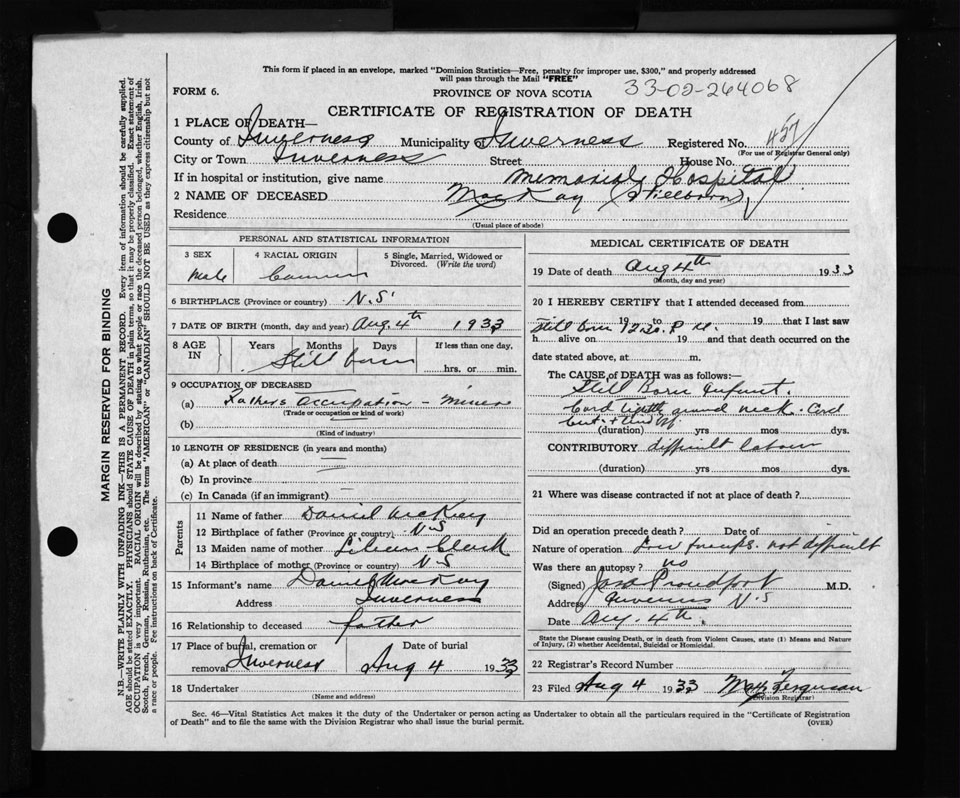 This form if placed in an envelope, marked "Dominion Statistics—Free, penalty for improper use, $300," and properly addressed
will pass through the Mail "FREE"
FORM 6.
PROVINCE OF NOVA SCOTIA
33-02-264068
CERTIFICATE OF REGISTRATION OF DEATH
1 PLACE OF DEATH—
457
County of Inverness Municipality Inverness Registered No.
(For use of Registrar General only)
City or Town Inverness Street House No.
If in hospital or institution, give name Memorial Hospital
2 NAME OF DECEASED MacKay (Stillborn)
Residence
(Usual place of abode)
PERSONAL AND STATISTICAL INFORMATION
3 SEX
Male
4 RACIAL ORIGIN
5 Single, Married, Widowed or Divorced. (Write the word)
6 BIRTHPLACE (Province or country) N.S.
7 DATE OF BIRTH (month, day and year) Aug. 4th 1933
8 AGE IN
Years Months Days If less than one day,
Still born
hrs. or min.
9 OCCUPATION OF DECEASED
(a) Fathers Occupation - Miner
(Trade or occupation or kind of work)
(b)
(Kind of industry)
10 LENGTH OF RESIDENCE (in years and months)
(a) At place of death
(b) In province
(c) In Canada (if an immigrant)
Parents
11 Name of father Daniel McKay
12 Birthplace of father (Province or country) N.S
13 Maiden name of mother Lilian Clark
14 Birthplace of mother (Province or country) N S
15 Informant's name Daniel McKay
Address Inverness
16 Relationship to deceased father
17 Place of burial, cremation or removal Inverness
Date of burial
Aug 4 1933
18 Undertaker
(Name and address)
MEDICAL CERTIFICATE OF DEATH
19 Date of death Aug 4th 1933
(Month, day and year)
20 I HEREBY CERTIFY that I attended deceased from
19 to 19 that I last saw
Still born 12.30 P.M.
h alive on 19 and that death occurred on the
date stated above, at m.
The CAUSE OF DEATH was as follows:—
Still Born Infant.
Cord tightly around neck. Cord
cut
(duration) yrs mos dys.
CONTRIBUTORY difficult labour
(duration) yrs mos dys.
21 Where was disease contracted if not at place of death?
Did an operation precede death? Date of
Nature of operation Low forceps. not difficult
Was there an autopsy? no
(Signed) Jas. Proudfoot M.D.
Address Inverness N.S
Date Aug. 4th.
State the Disease causing Death, or in death from Violent Causes, state (1) Means and Nature
of Injury, (2) whether Accidental, Suicidal or Homicidal.
22 Registrar's Record Number
23 Filed Aug 4 1933 Ferguson
(Division Registrar)
Sec. 46—Vital Statistics Act makes it the duty of the Undertaker or person acting as Undertaker to obtain all the particulars required in the "Certificate of Registration
of Death" and to file the same with the Division Registrar who shall issue the burial permit.
(OVER)
MARGIN RESERVED FOR BINDING
N.B.—WRITE PLAINLY WITH UNFADING INK—THIS IS A PERMANENT RECORD. Every item of information should be carefully supplied.
AGE should be stated EXACTLY. PHYSICIANS should STATE CAUSE OF DEATH in plain terms, so that it may be properly classified. Exact statement of
OCCUPATION is very important. RACIAL ORIGIN will be described by stating to what people or race the deceased person belonged, whether English, Irish,
Scotch, French, German, Russian, Ruthenian, etc. The terms "AMERICAN" or "CANADIAN" SHOULD NOT BE USED as they express citizenship but not
a race or people. Fee instructions on back of Certificate.